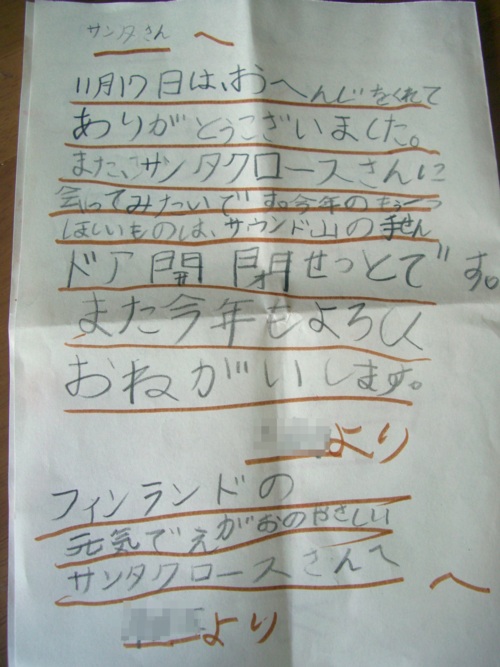 サンタさん へ
11月17日は、おへんじをくれて
ありがとうございました。
また、サンタクロースさんに
会ってみたいです。今年の
ほしいものは、サウンド山の手せん
ドア開閉せっとです。
また今年もよろしく
おねがいします。
より
フィンランドの
元気でえがおのやさしい
サンタクロースさんへ
へ
より